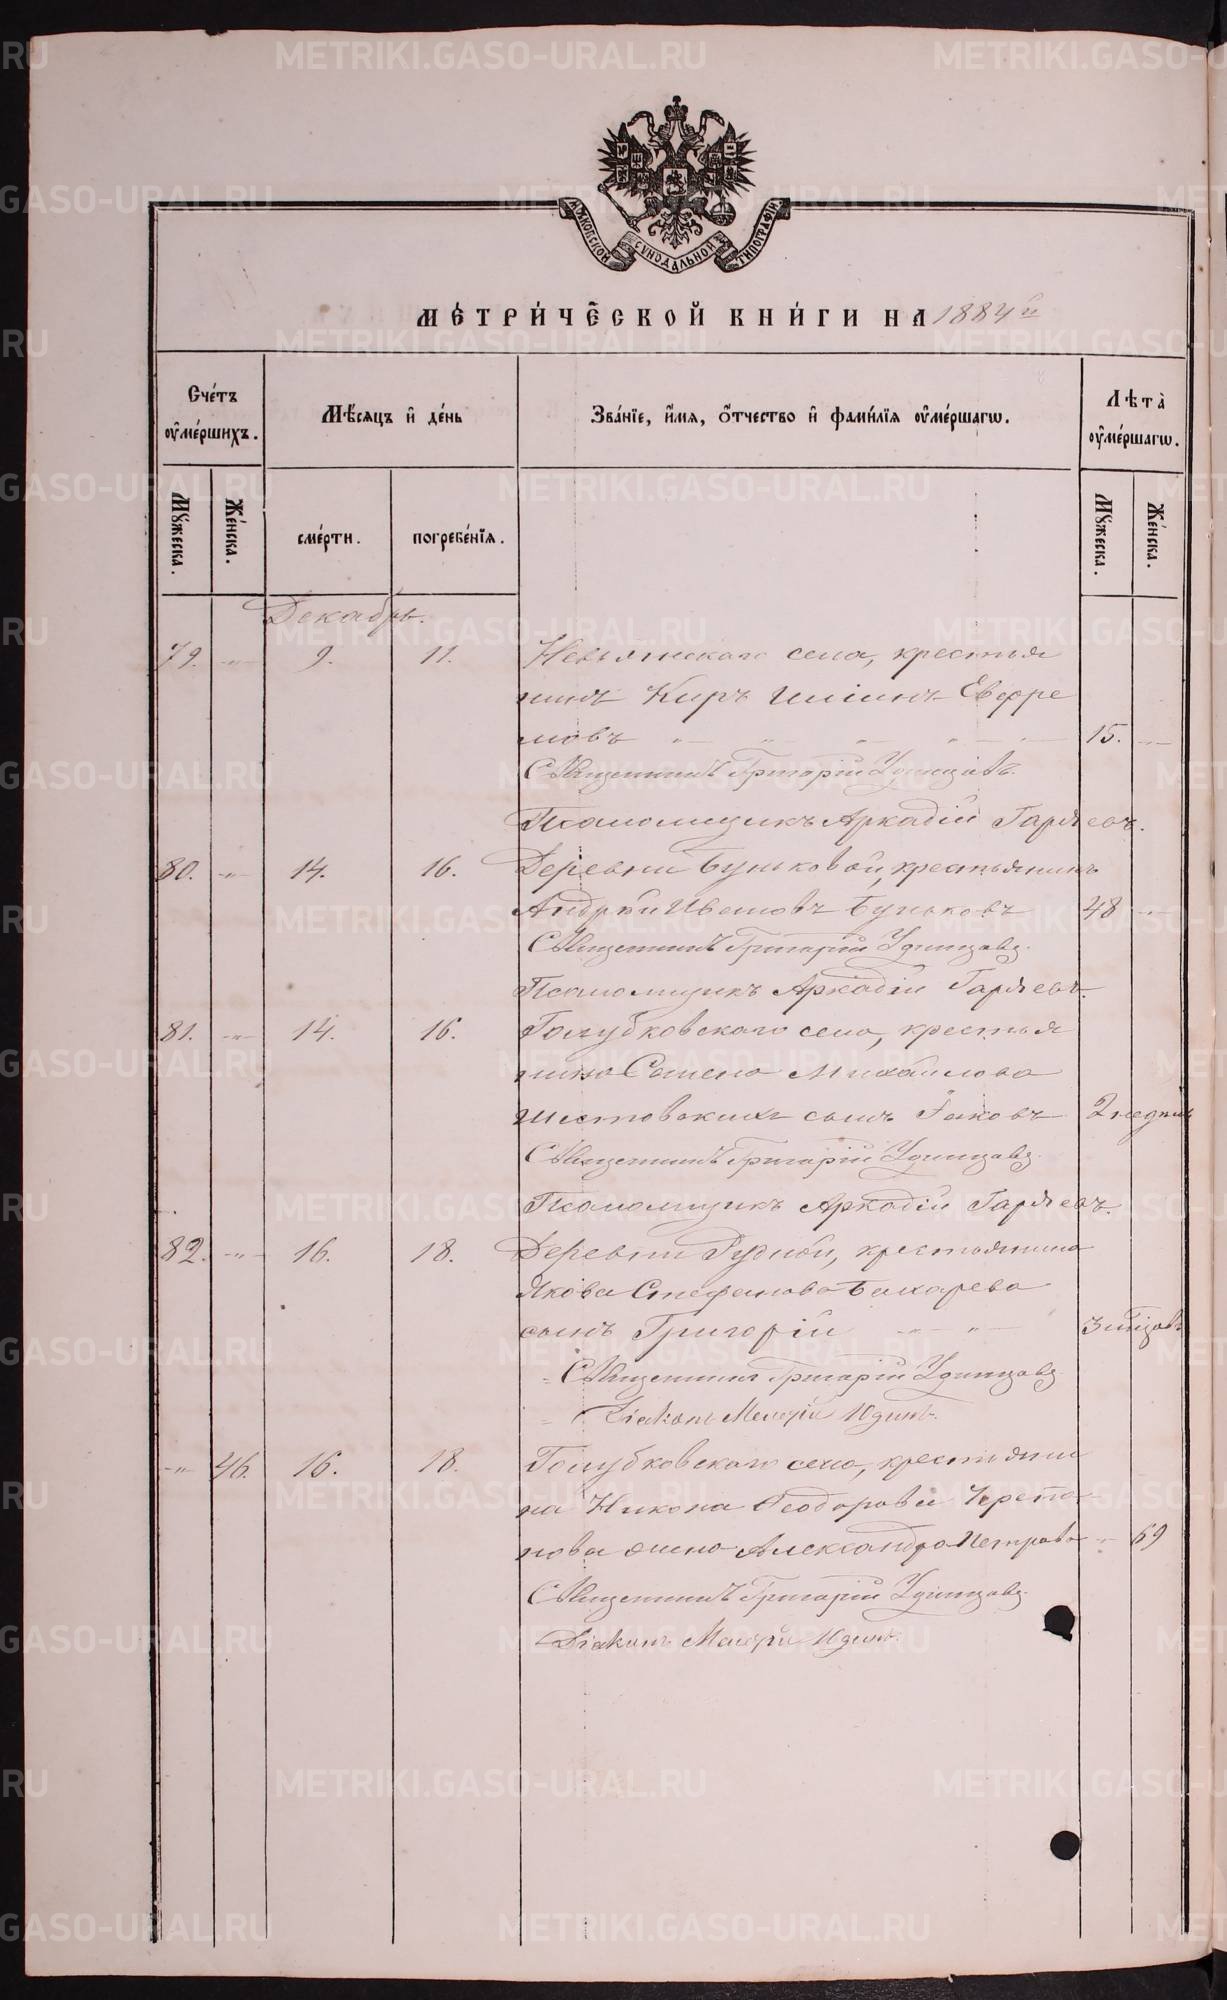 МОСКОВСКОЙ СѴНОДАЛЬНОЙ ТИПОГРАФІИ
МЕТРИЧЕСКОЙ КНИГИ НА 1884й
Счетъ оумершихъ.
Мѣсяцъ и день
Званіе, имя, отчество и фамилія оумершагѡ.
Лѣта оумершагѡ.
Мꙋжеска.
Женска.
смерти.
погребенія.
Мꙋжеска.
Женска.
Декабрь.
79. -"- 9. 11. Невьянскаго села, крестья
нинъ Киръ Иліинъ Евфре
мовъ 15.
Священникъ Григорій Удинцовъ.
Псаломщикъ Аркадій Гаряевъ.
80. -"- 14. 16. Деревни Буньковой, крестьянинъ
Андрей Ивановъ Буньковъ 48
Священникъ Григорій Удинцовъ.
Псаломщикъ Аркадій Гаряевъ.
81. -"- 14. 16. Голубковскаго села, крестья
нина Семена Михаилова
Шестовскихъ сынъ Іаковъ 2 недѣли
Священникъ Григорій Удинцовъ.
Псаломщикъ Аркадій Гаряевъ.
82. -"- 16. 18. Деревни Рудной, крестьянина
Якова Стефанова Бахарева
сынъ Григорій
Священникъ Григорій Удинцовъ
Діаконъ Юдинъ.
-"- 46. 16. 18. Голубковскаго села, крестьяни
на Никона Феодорова Черепа
нова жена Александра Петрова 69
Священникъ Григорій Удинцовъ
Діаконъ Юдинъ.
METRIKI.GASO-URAL.RU